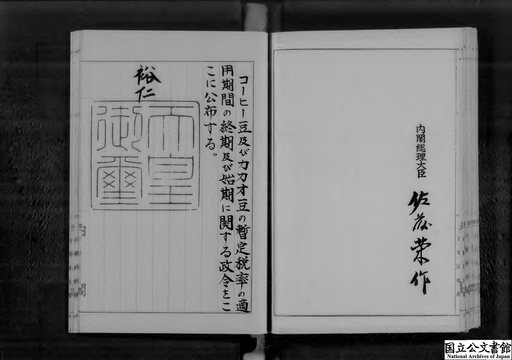 コーヒー豆及びカカオ豆の暫定税率の適
用期間の終期及び始期に関する政令をこ
こに公布する。
裕仁
天皇
御璽
内閣総理大臣
佐藤榮作
国立公文書館
National Archives of Japan